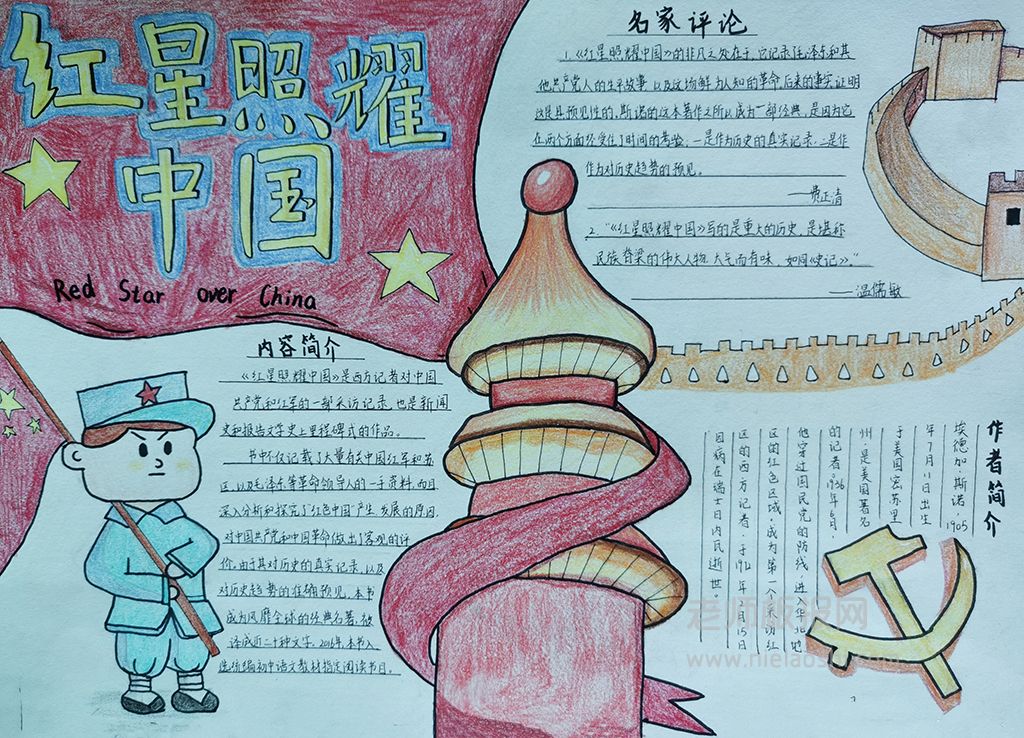 红星照耀
中国
Red Star over China
内容简介
《红星照耀中国》是西方记者对中国
共产党和红军的一部采访记录,也是新闻
史和报告文学史上里程碑式的作品。
书中不仅记载了大量有关中国红军和苏
区,以及毛泽东等革命领导人的一手资料,而且
深入分析和探究了“红色中国”产生、发展的原因,
对中国共产党和中国革命做出了客观的评
价,由于其对历史的真实记录,以及
对历史趋势的准确预见,本书
成为风靡全球的经典名著,被
译成近二十种文字。2016年,本书入
选统编初中语文教材指定阅读书目。
名家评论
1.《红星照耀中国》的非凡之处在于,它记录毛泽东和其
他共产党人的生平故事,以及这场鲜为人知的革命,后来的事实证明
这是具预见性的,斯诺的这本著作之所以成为一部经典,是因为它
在两个方面经受住了时间的考验,一是作为历史的真实记录,二是作
作为对历史趋势的预见。
——费正清
2.“《红星照耀中国》写的是重大的历史,是堪称
民族脊梁的伟大人物,大气而有味,如同《史记》。”
——温儒敏
作者简介
埃德加·斯诺,1905
年7月11日出生
于美国密苏里
州是美国著名
的记者。1936年6月,
他穿过国民党的防线,进入华北地
区的红色区域,成为第一个采访红
区的西方记者,于1972年2月15日
因病在瑞士日内瓦逝世。
老师板报网